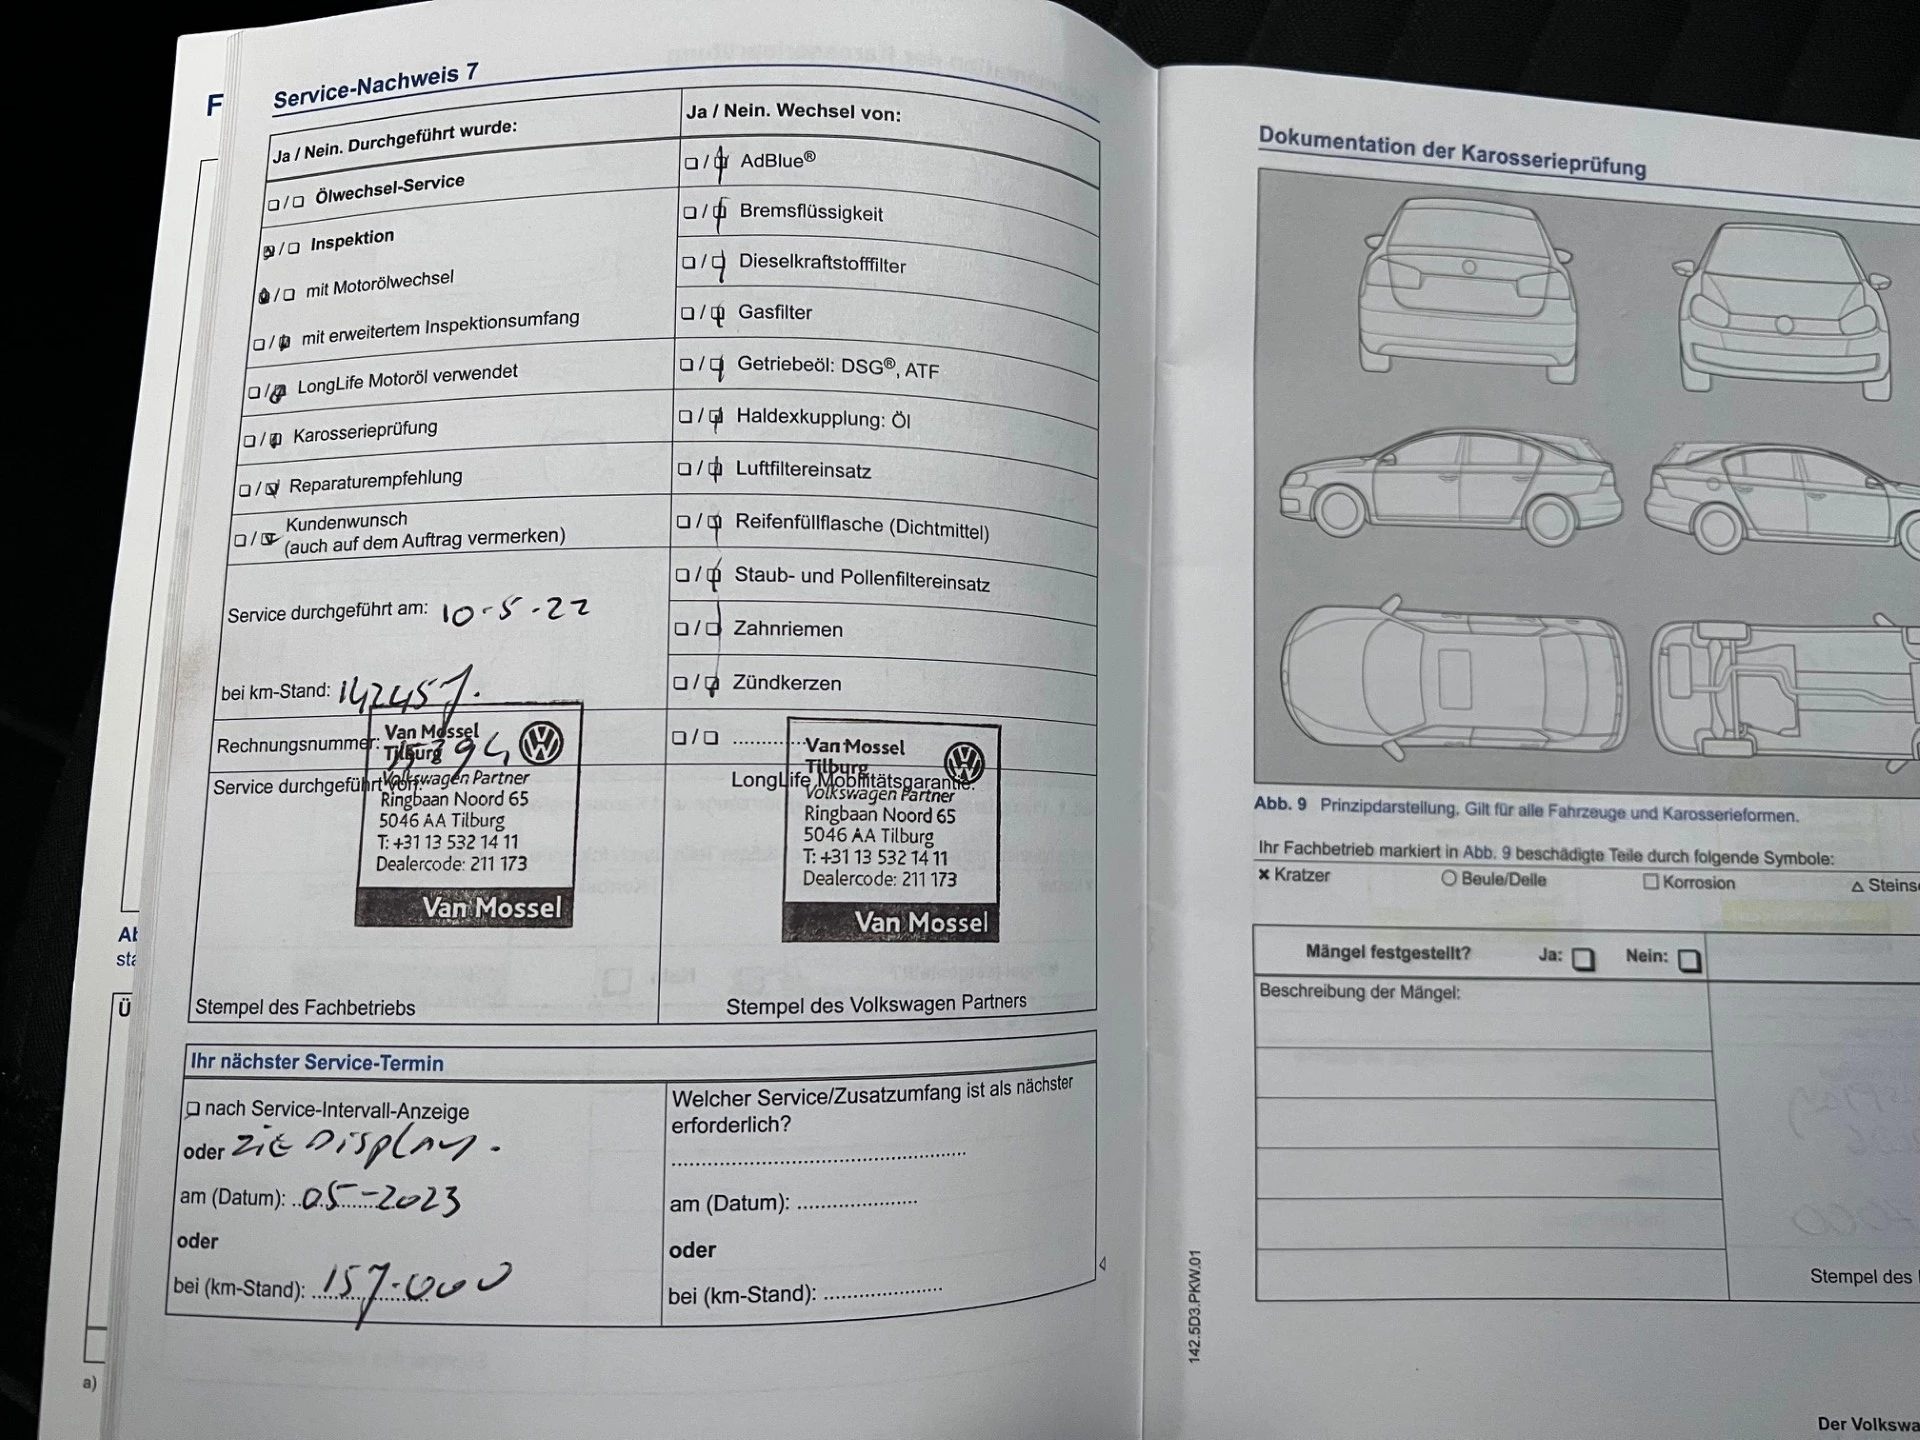 F
Service-Nachweis 7
Ja / Nein. Durchgeführt wurde:
Ölwechsel-Service
Inspektion
mit Motorölwechsel
mit erweitertem Inspektionsumfang
LongLife Motoröl verwendet
Karosserieprüfung
Reparaturempfehlung
Kundenwunsch
(auch auf dem Auftrag vermerken)
Service durchgeführt am: 10-5-22
bei km-Stand: 142457.
Rechnungsnummer:
Service durchgeführt von:
Van Mossel
Tilburg
Volkswagen Partner
Ringbaan Noord 65
5046 AA Tilburg
T: +31 13 532 14 11
Dealercode: 211 173
Van Mossel
Stempel des Fachbetriebs
Ja / Nein. Wechsel von:
AdBlue®
Bremsflüssigkeit
Dieselkraftstofffilter
Gasfilter
Getriebeöl: DSG®, ATF
Haldexkupplung: Öl
Luftfiltereinsatz
Reifenfüllflasche (Dichtmittel)
Staub- und Pollenfiltereinsatz
Zahnriemen
Zündkerzen
LongLife Mobilitätsgarantie:
Van Mossel
Tilburg
Volkswagen Partner
Ringbaan Noord 65
5046 AA Tilburg
T: +31 13 532 14 11
Dealercode: 211 173
Van Mossel
Stempel des Volkswagen Partners
Ihr nächster Service-Termin
nach Service-Intervall-Anzeige
oder ZiE Display.
am (Datum): 05-2023
oder
bei (km-Stand): 157.000
Welcher Service/Zusatzumfang ist als nächster
erforderlich?
am (Datum):
oder
bei (km-Stand):
a)
Dokumentation der Karosserieprüfung
Abb. 9 Prinzipdarstellung. Gilt für alle Fahrzeuge und Karosserieformen.
Ihr Fachbetrieb markiert in Abb. 9 beschädigte Teile durch folgende Symbole:
× Kratzer
Beule/Delle
Korrosion
Steins
Mängel festgestellt? Ja: Nein:
Beschreibung der Mängel:
Stempel des
142.5D3.PKW.01
Der Volkswa